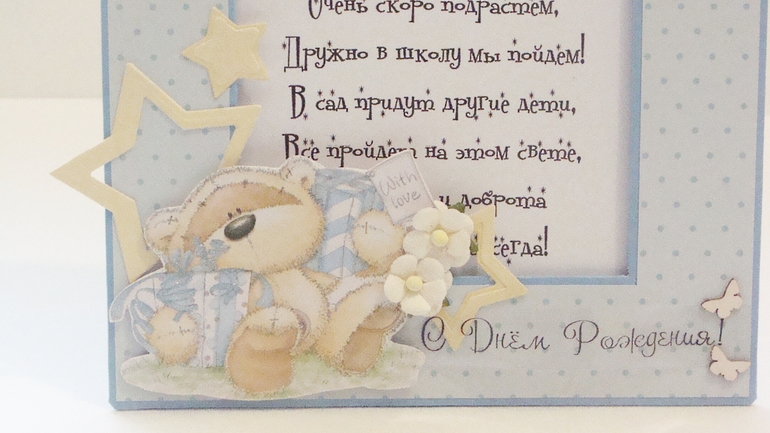 Очень скоро подрастём,
Дружно в школу мы пойдём!
В сад придут другие дети,
Все пройдет на этом свете,
With love
доброта
С Днём Рождения!